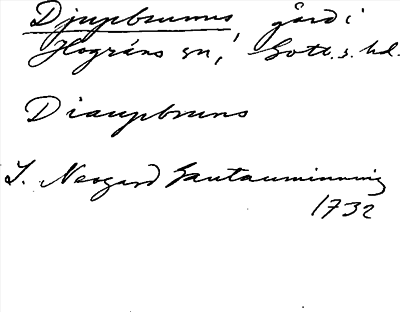 Djupbrunns, gård i
Hogräns sn, Gotl. s. hd.
Diaupbruns
J. Neogard Gautauminning
1732